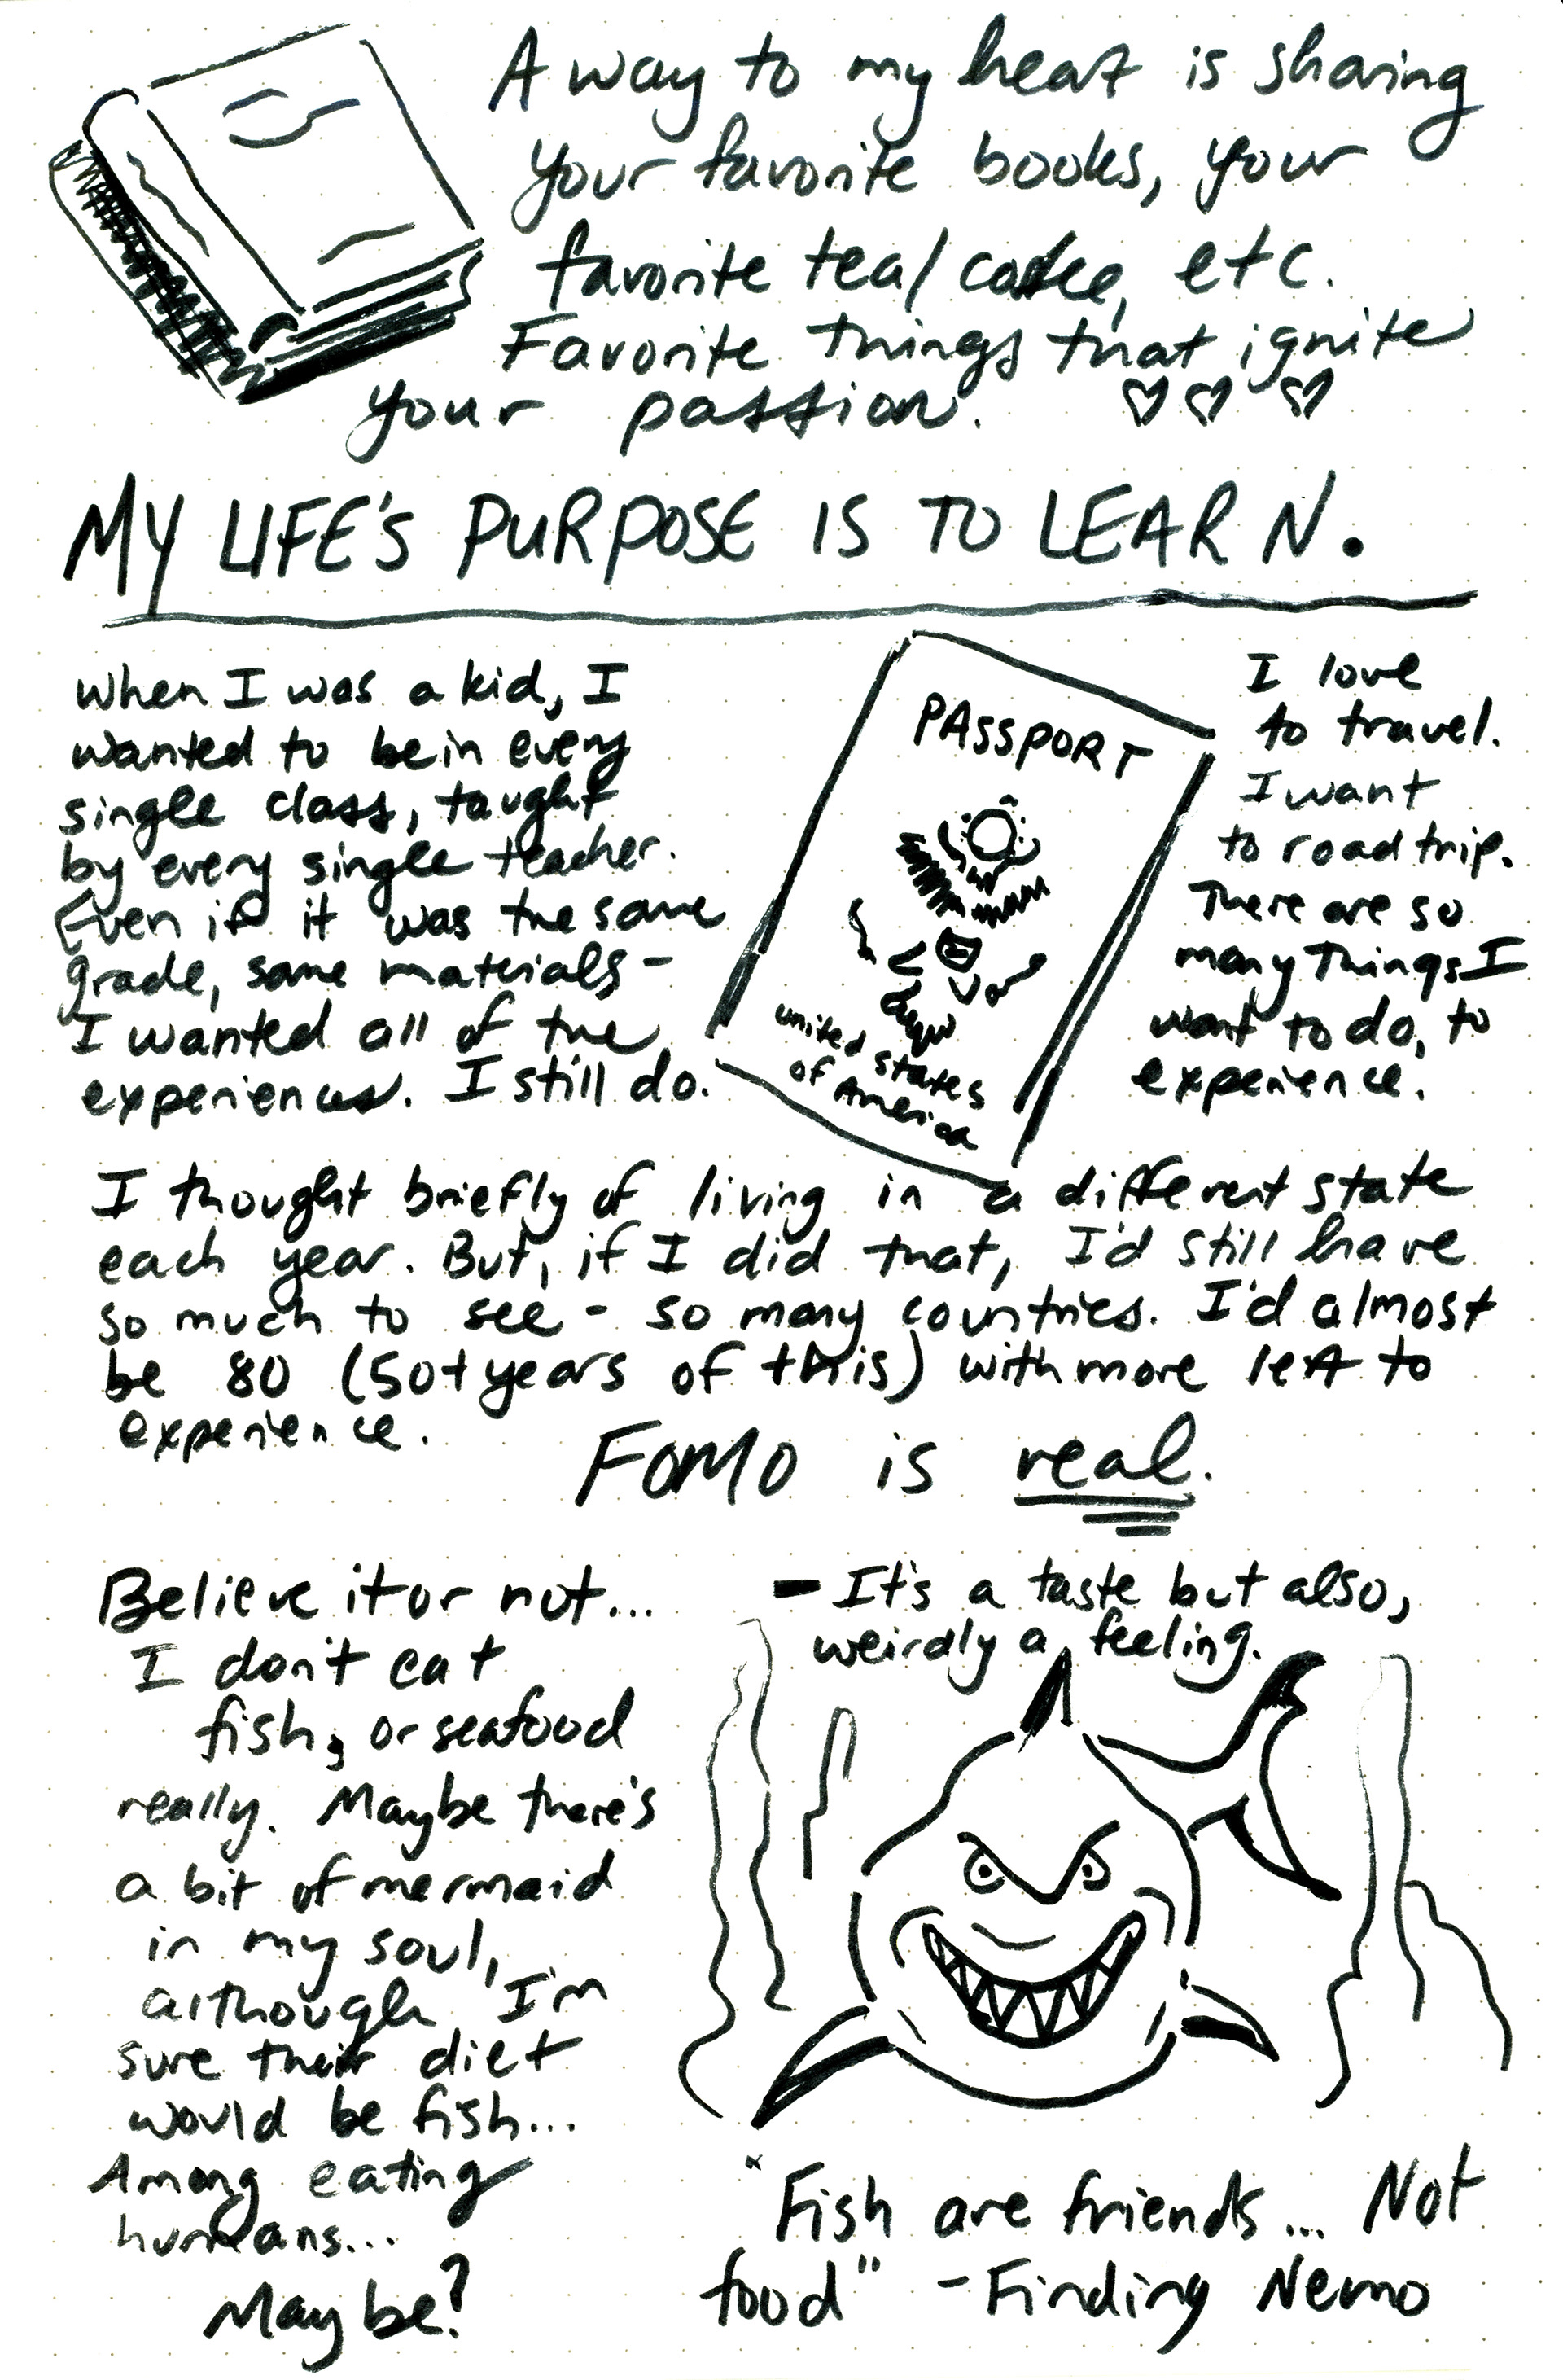 A way to my heart is sharing
your favorite books, your
favorite tea/coffee, etc.
Favorite things that ignite
your passion.
MY LIFE'S PURPOSE IS TO LEARN.
When I was a kid, I
wanted to be in every
single class, taught
by every single teacher.
Even if it was the same
grade, same materials -
I wanted all of the
experiences. I still do.
PASSPORT
United States
of America
I love
to travel.
I want
to road trip.
There are so
many things I
want to do, to
experience.
I thought briefly of living in a different state
each year. But, if I did that, I'd still have
so much to see - so many countries. I'd almost
be 80 (50+ years of this) with more left to
experience.
FOMO is real.
Believe it or not...
I don't eat
fish, or seafood
really. Maybe there's
a bit of mermaid
in my soul,
although I'm
sure their diet
would be fish...
Among eating
humans...
Maybe?
- It's a taste but also,
weirdly a feeling.
"Fish are friends... Not
food" - Finding Nemo